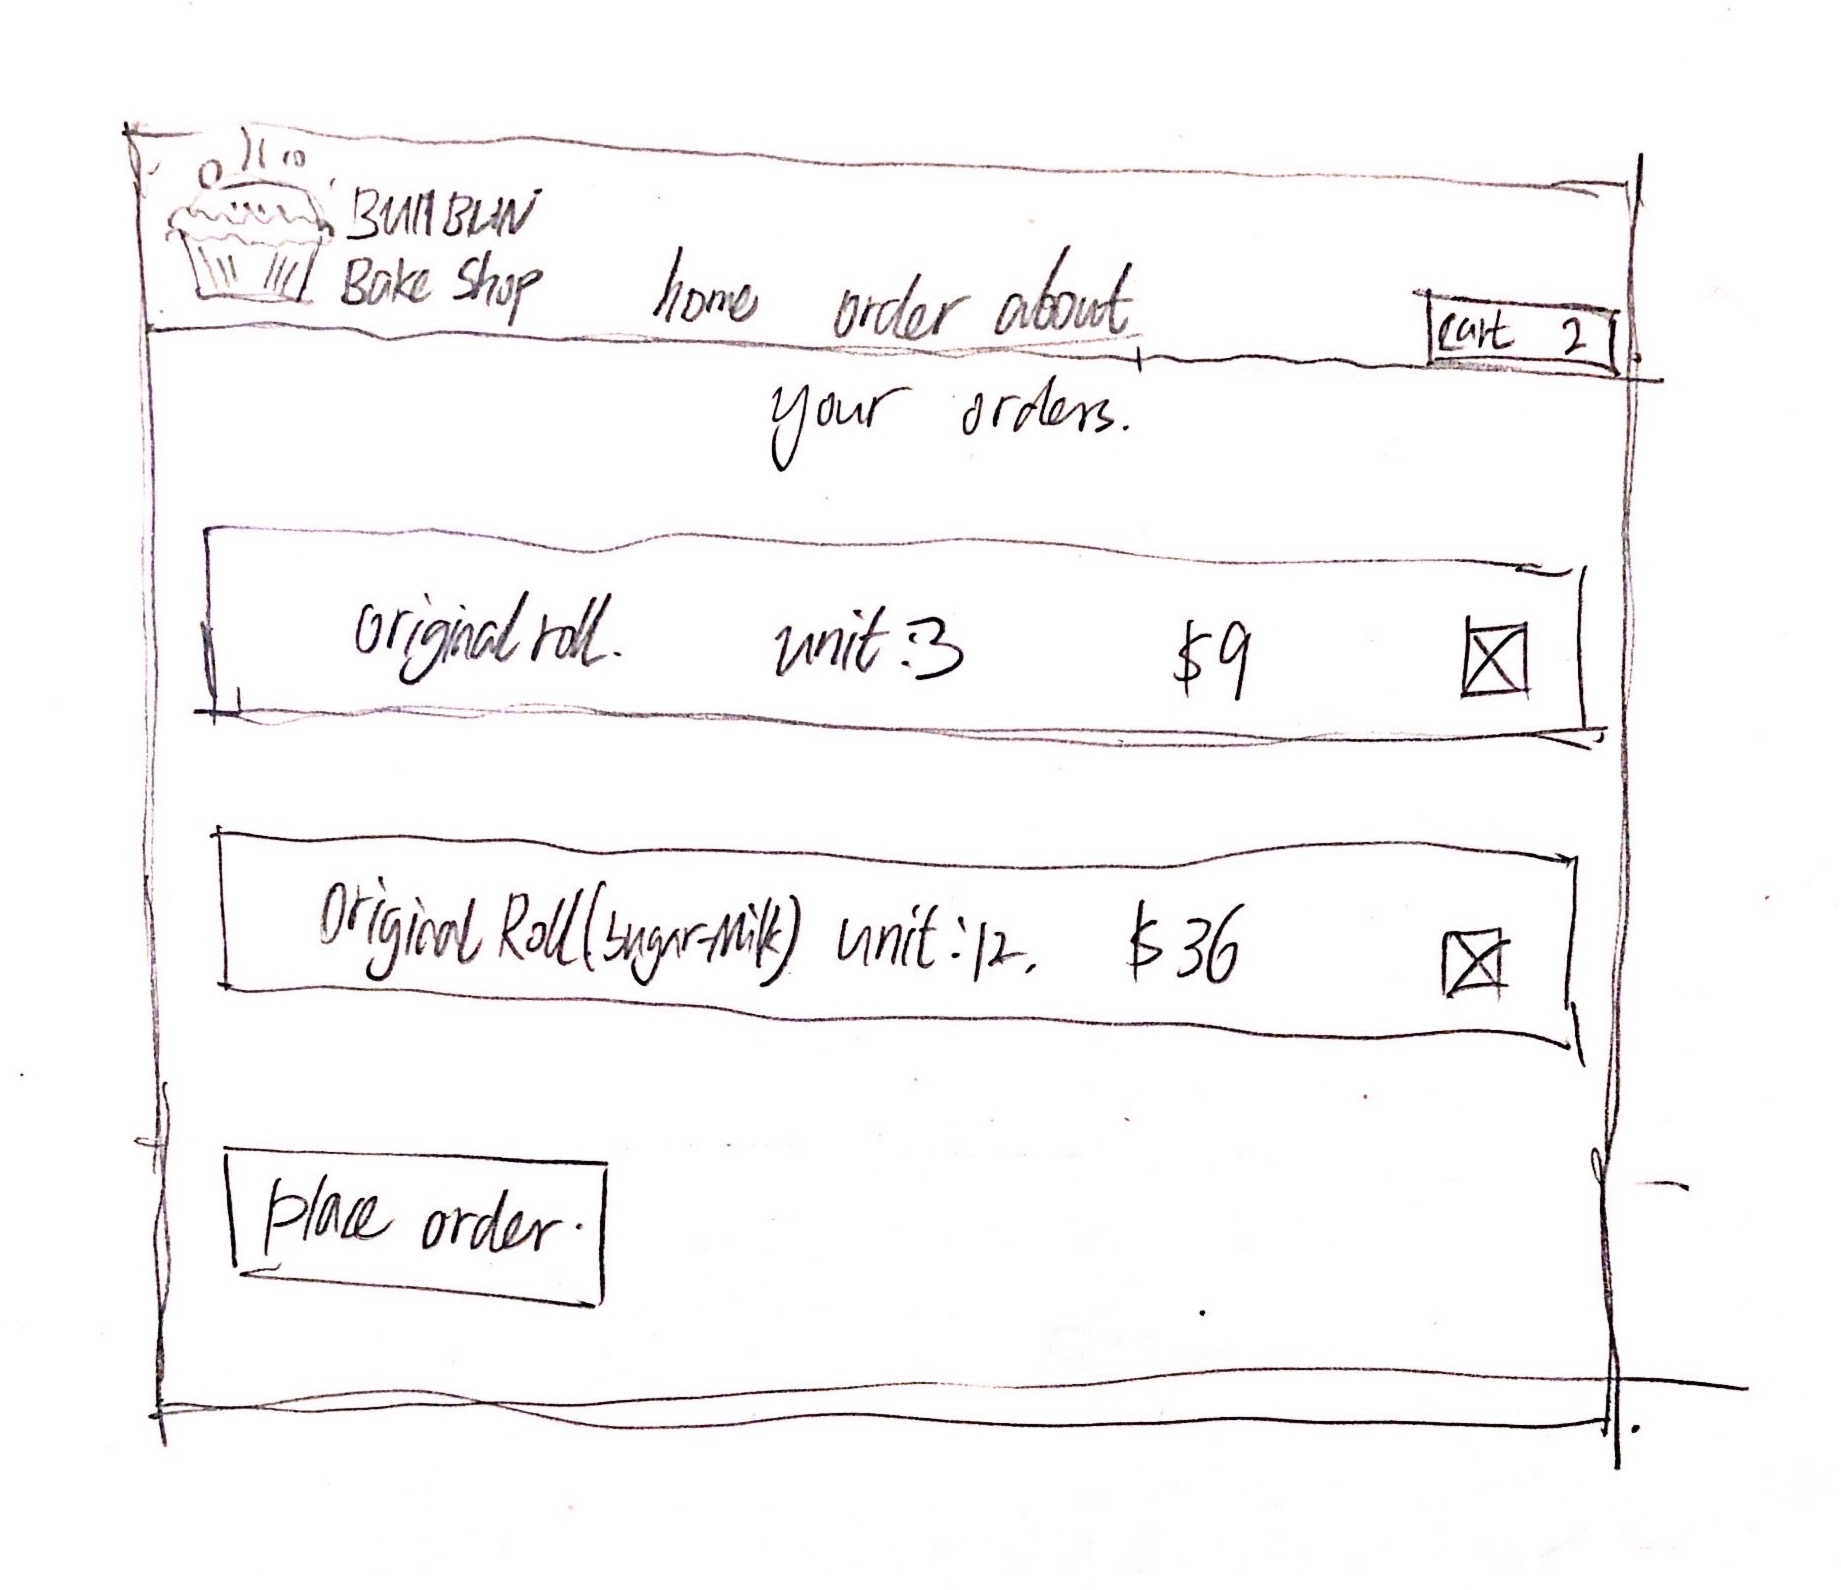 BUNBUN
Bake Shop
home order about
cart 2
your orders.
original roll. unit:3 $9
Original Roll (sugar-Milk) unit:12. $36
place order.